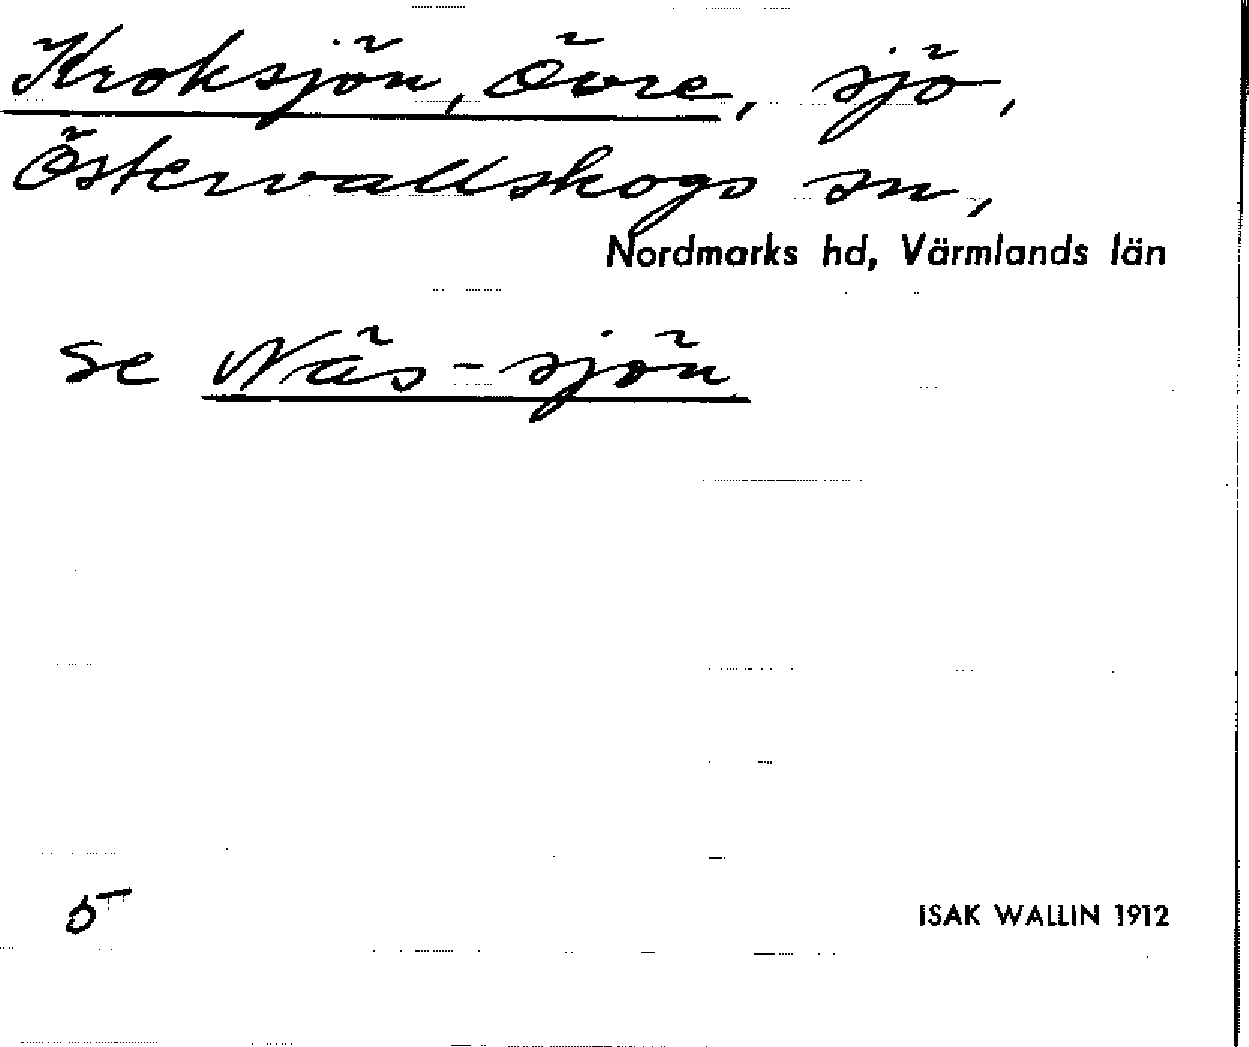 Kroksjön, Övre, sjö,
Östervallskogs sn,
Nordmarks hd, Värmlands län
se Näs-sjön
ISAK WALLIN 1912